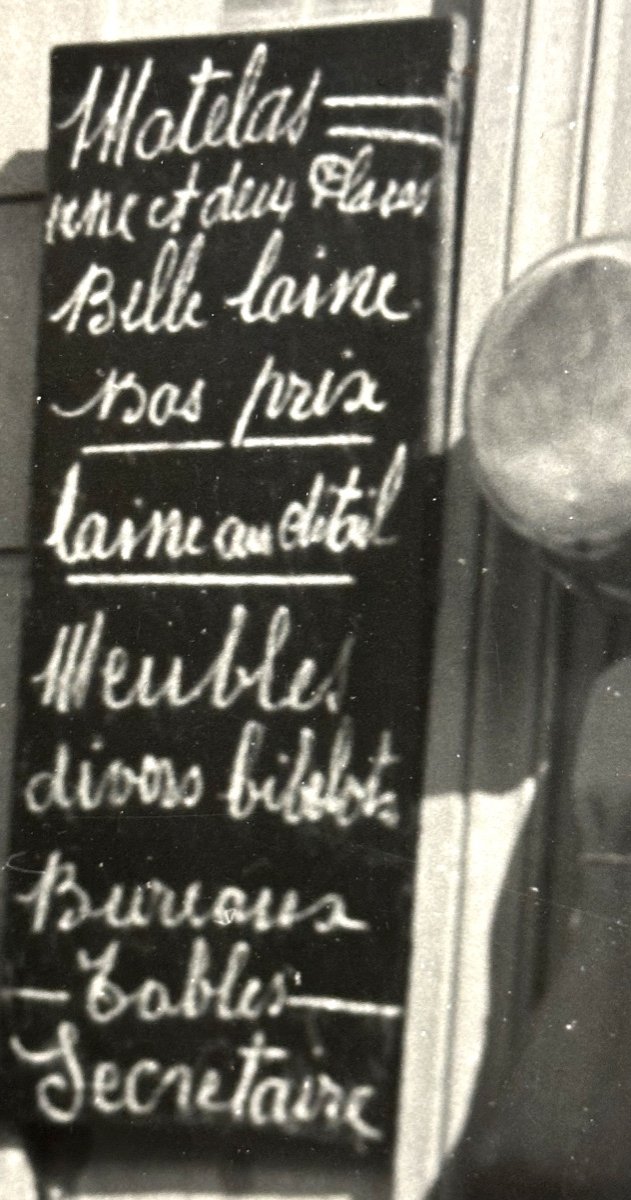 Matelas
une et deux Places
Belle laine
Bas prix
laine au détail
Meubles
divers bibelots
Bureaux
Tables
Secretaire